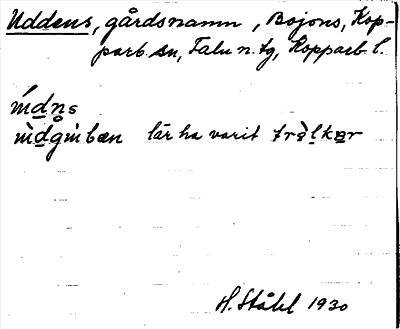 Uddens, gårdsnamn, Bojons, Kop-
parb. sn, Falu n. tg, Kopparb l.
ẃdns
ẁdgẃbæn lär ha varit træ̀lkær
H. Ståhl 1930